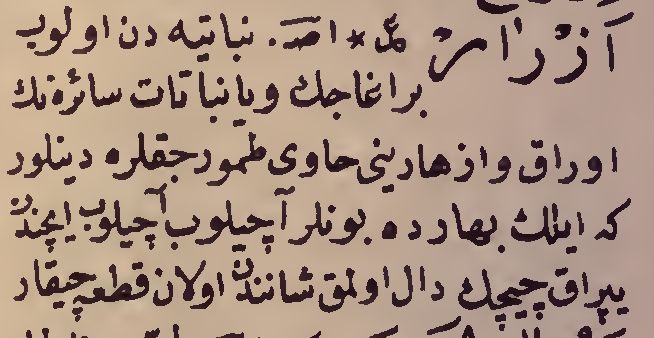 آزرار مر ★ اصـ. نباتیه دن اولوب
بر اغاجك ویا نباتات سائره نك
اوراق و ازهارینی حاوی طمورجقلره دینلور
که ایلك بهار ده بونلر آچیلوب آچیلوب ایچندن
یپراق چیچك دال اولمق شانندن اولان قطعه چیقار